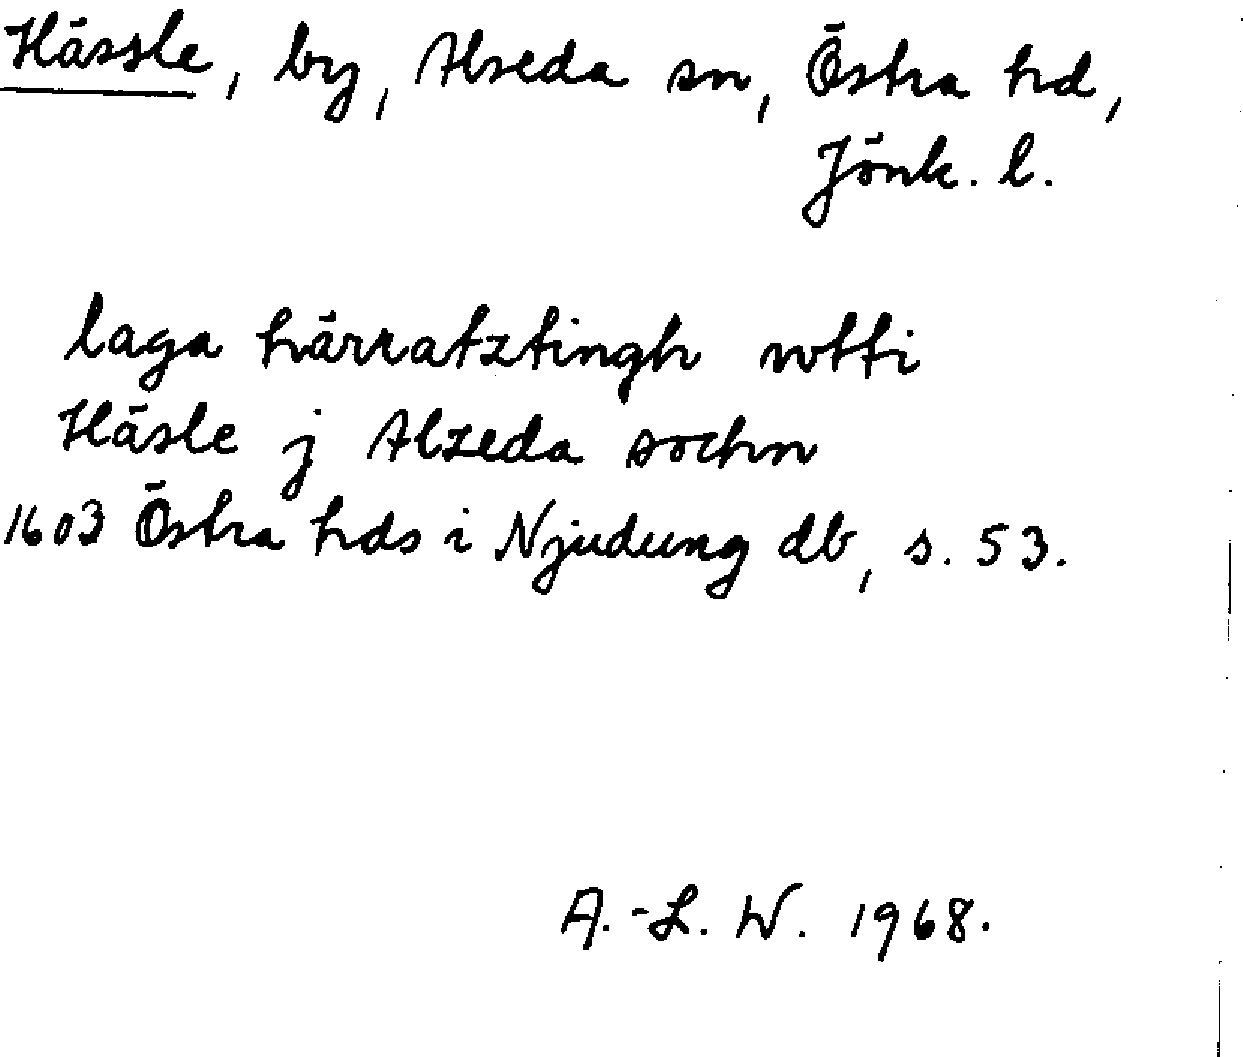 Hässle, by, Alseda sn, Östra hd,
Jönk. l.
laga härratztingh wtti
Häsle j Alzeda sochn
1603 Östra hds i Njudung db, s. 53.
A.-L. W. 1968.